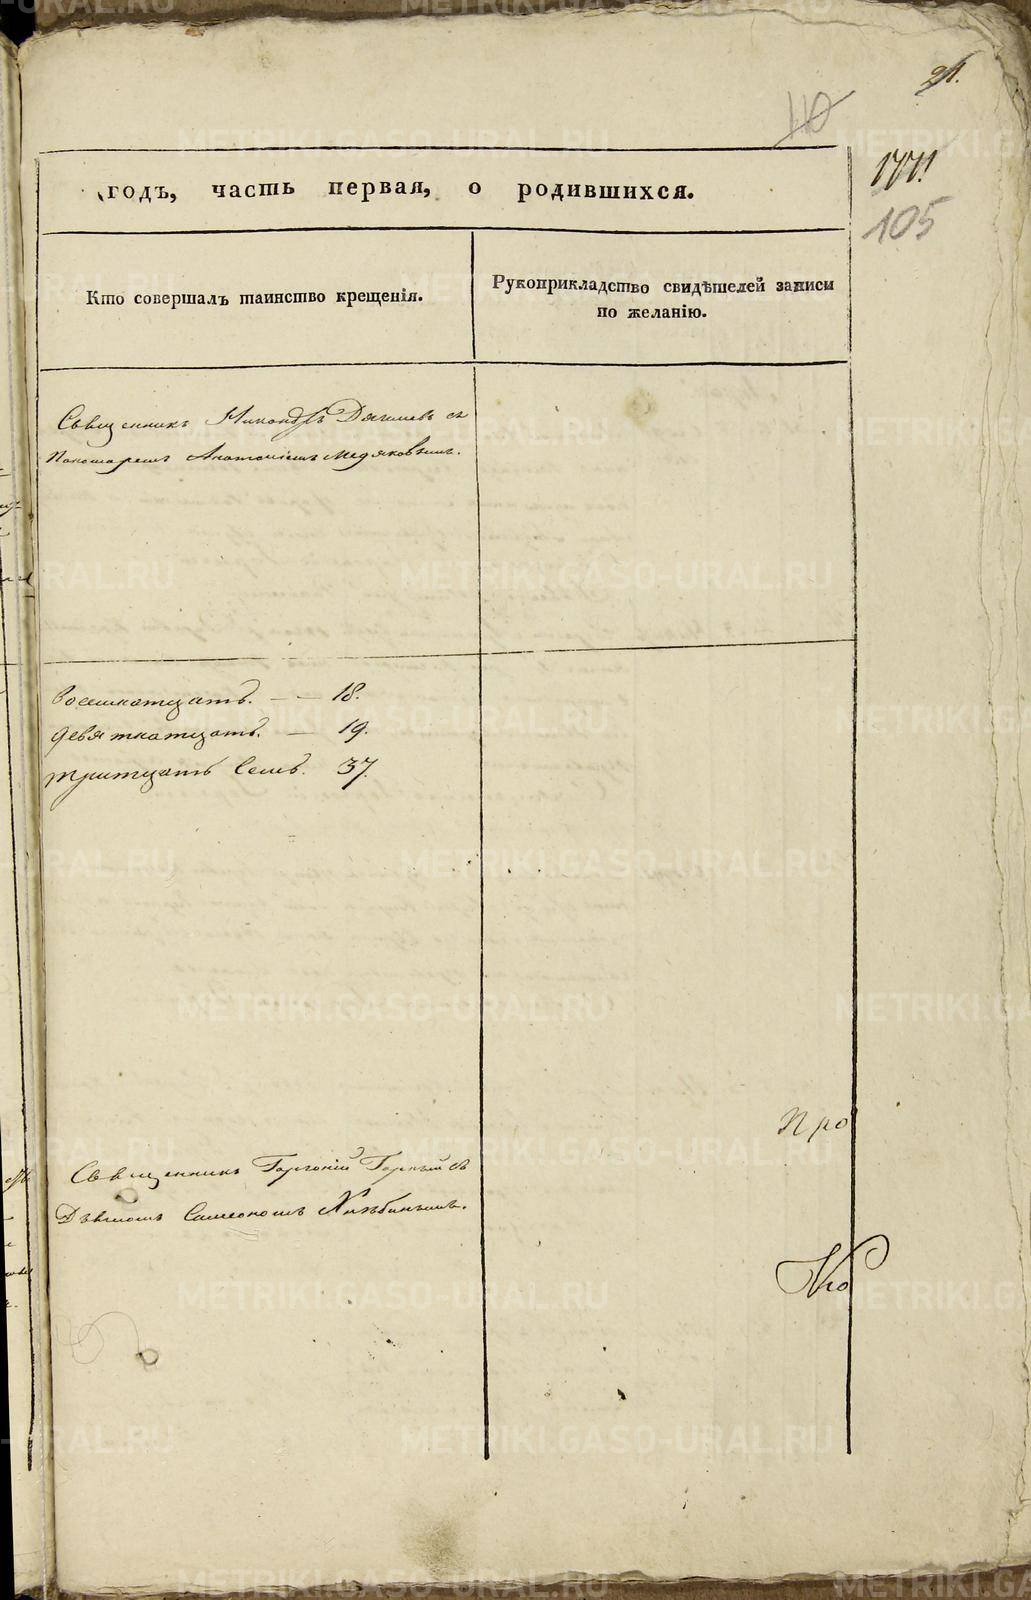 21.
110
1771
105
годъ, часть первая, о родившихся.
Кто совершалъ таинство крещенія.
Рукоприкладство свидѣтелей записи
по желанію.
Священникъ Никандръ съ
Пономаремъ Анатоліемъ Медяковымъ.
Восемнатцать. — — 18.
девятнатцать. — 19.
тритцать Семь. 37.
Про
Священникъ Горгоній Горный съ
Симеономъ Хлѣбинымъ.
METRIKI.GASO-URAL.RU